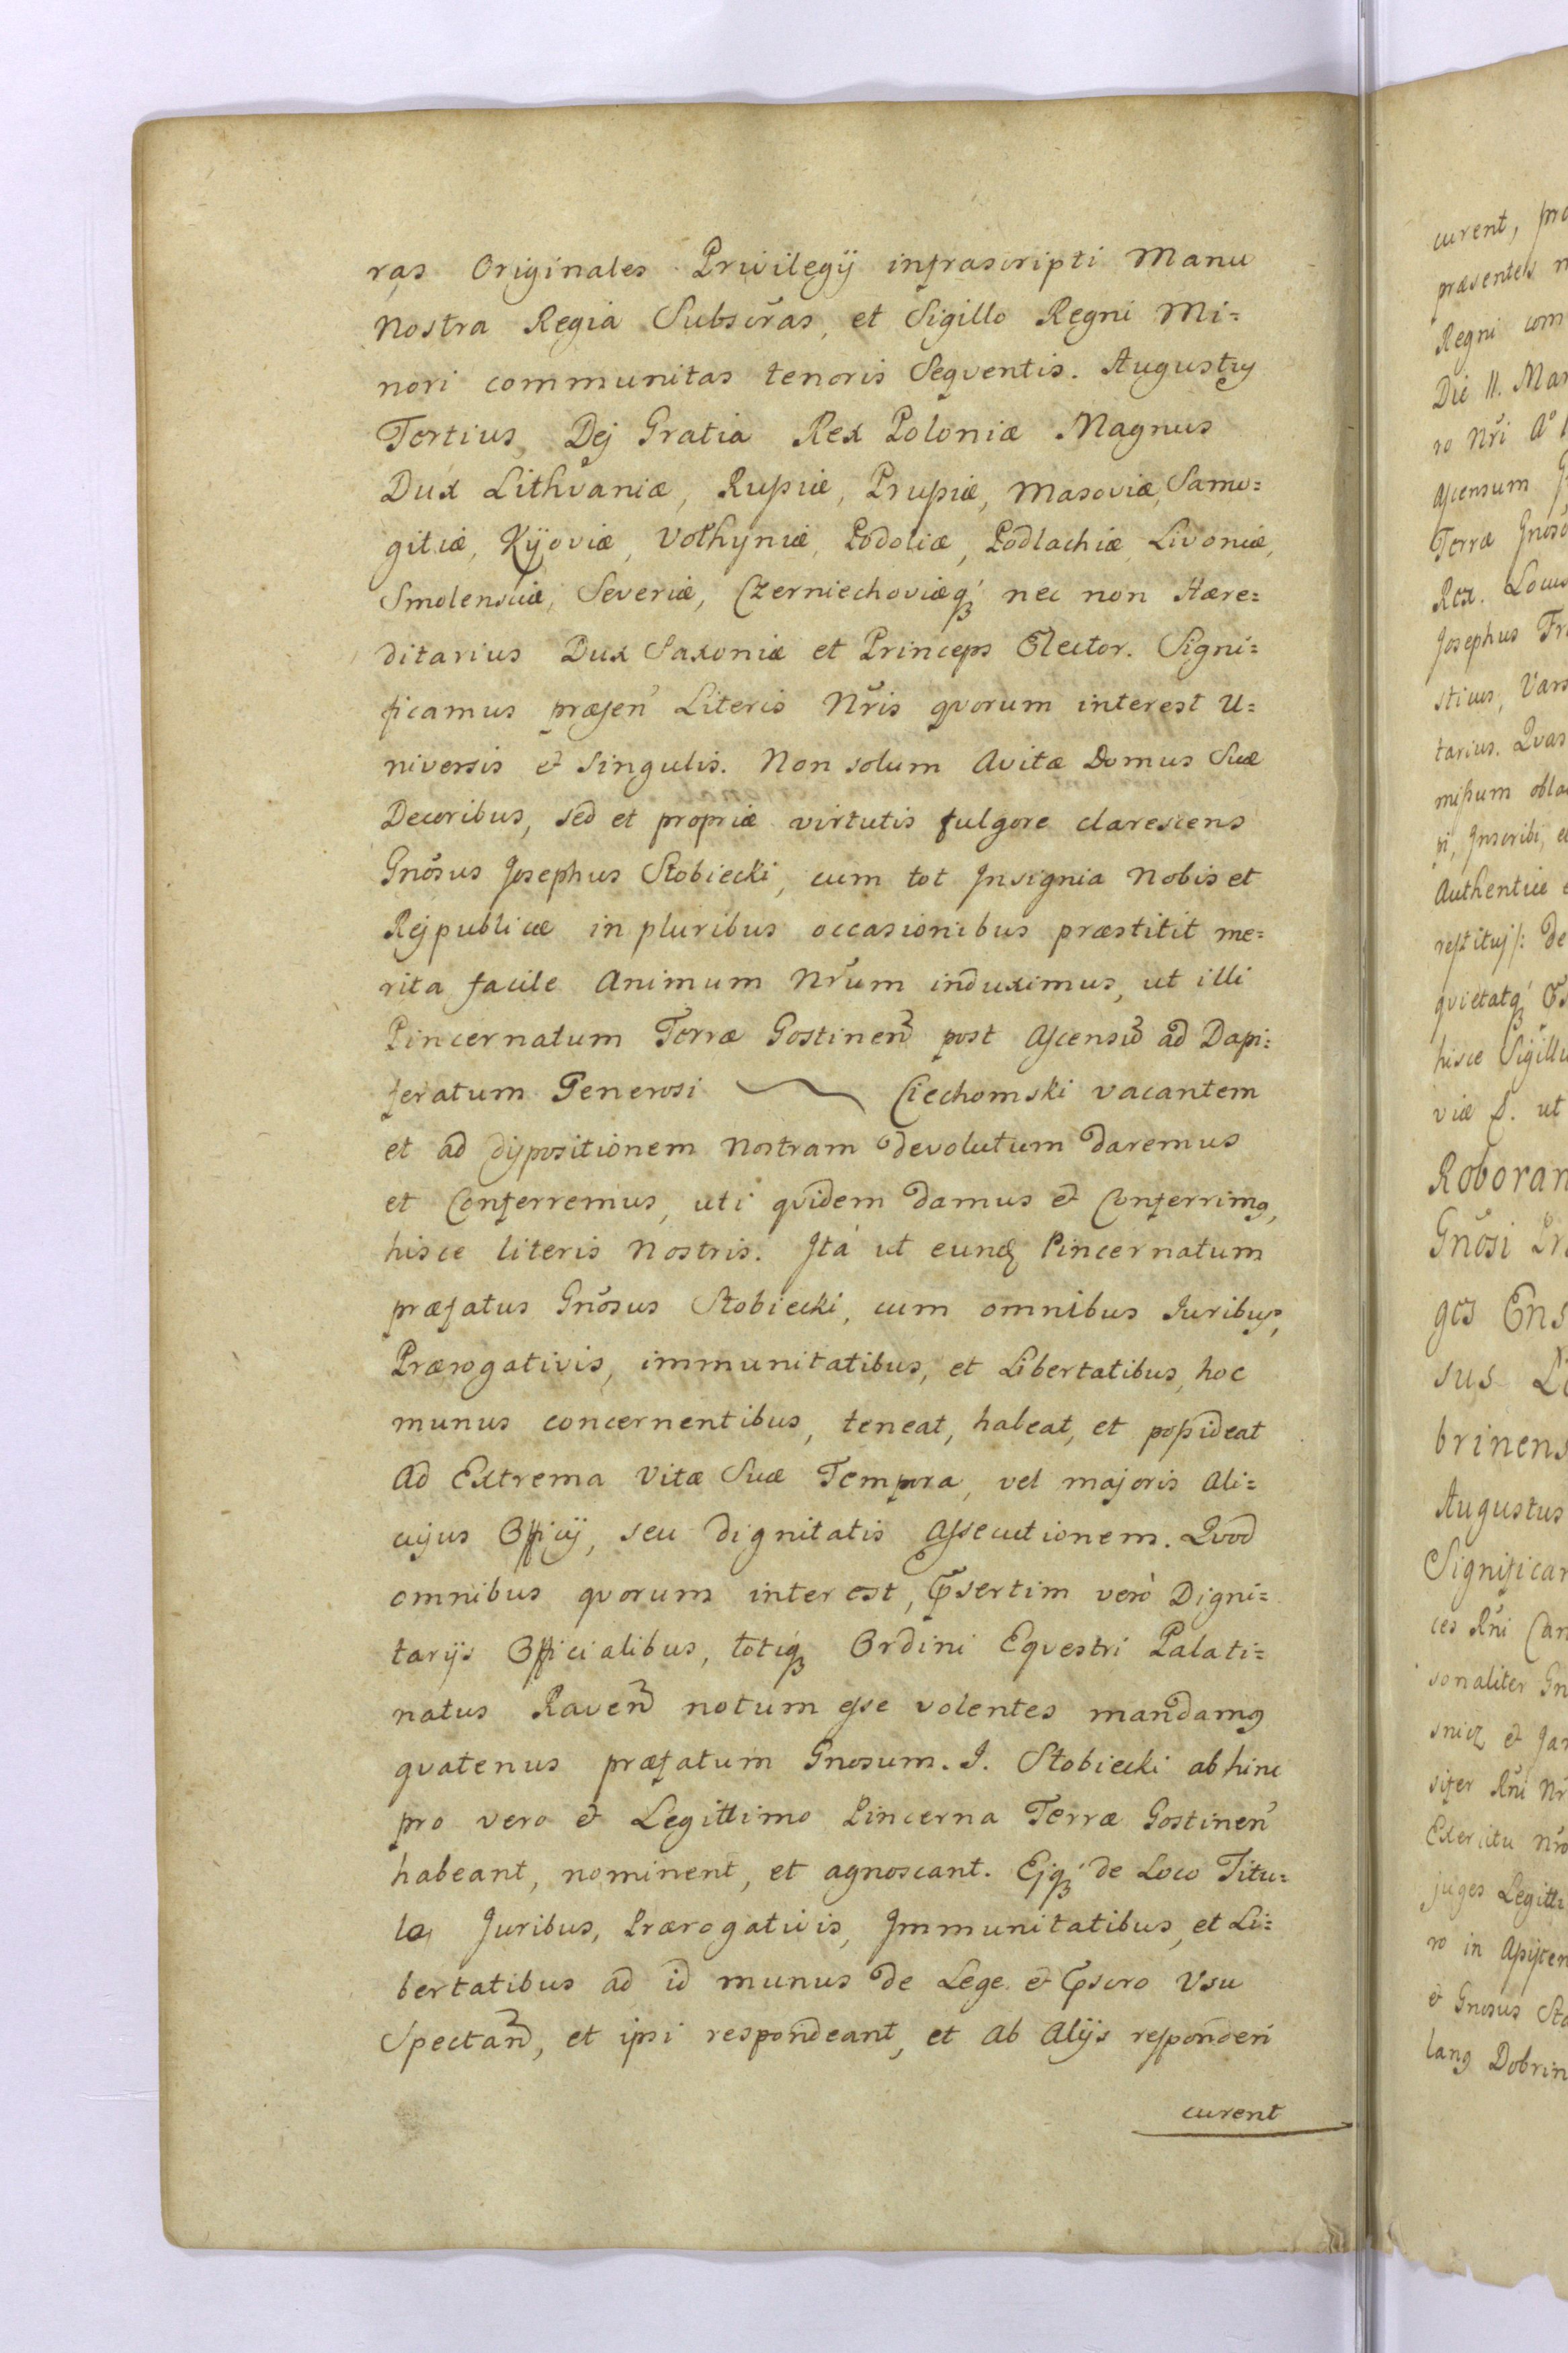 ras Originales Privilegij infrascripti Manu
Nostra Regia Subscr̃as, et Sigillo Regni Mi=
nori communitas tenoris Seqventis. Augustus
Tertius, Dej Gratia Rex Poloniæ Magnus
Dux Lithvaniæ, Rußiæ, Prußiæ, Masoviæ, Samo=
gitiæ, Kijoviæ, Volhyniæ, Podoliæ, Podlachiæ, Livoniæ,
Smolensciæ, Severiæ, Czerniechoviæq́ nec non Hære=
ditarius Dux Saxoniæ et Princeps Elector. Signi=
ficamus præsen̄ Literis Nr̃is qvorum interest U=
niversis & Singulis. Non solum Avitæ Domus Suæ
Decoribus, sed et propriæ virtutis fulgore clarescens
Gnõsus Josephus Stobiecki, cum tot Insignia Nobis et
Rejpublicæ in pluribus occasionibus præstitit me=
rita facile Animum Nr̃um induximus, ut illi
Pincernatum Terræ Gostinen̄ post Ascensũ ad Dapi:
feratum Generosi ~ Ciechomski vacantem
et ad dispositionem Nostram devolutum daremus
et Conferremus, uti qvidem damus & Conferrimꝰ,
hisce literis Nostris. Ità ut eundꝫ Pincernatum
præfatus Gnõsus Stobiecki, cum omnibus Juribus,
Prærogativis, immunitatibus, et Libertatibus, hoc
munus concernentibus, teneat, habeat, et poßideat
Ad Extrema Vitæ Suæ Tempora, vel majoris Ali=
cujus Officij, seu dignitatis Assecutionem. Qvod
omnibus qvorum interest, Pr̃sertim verò Digni=
tarijs Officialibus, totiq́ Ordini Eqvestri Palati=
natus Raven̄ notum esse volentes mandamꝰ
qvatenus præfatum Gnosum. J. Stobiecki abhinc
pro vero & Legittimo Pincerna Terræ Gostinen̄
habeant, nominent, et agnoscant. Ejq́ de Loco Titu=
lo, Juribus, Prærogativis, Immunitatibus, et Li=
bertatibus ad id munus de Lege & Pr̃scro Usu
Spectan̄, et ipsi respondeant, et Ab Alijs responderi
curent
curent,
præsentes
Regni com
Die 11. Mar
ro Nr̃i A°
Ascensum
Terræ Gnoso
Rex. Locus
Josephus Fr
stius, Vars
tarius. Qvas
mißum obla
pi, Inscribi,
Authentice
restituj
qvietatq́
hisce Sigillu
viæ S. ut
Roboran
Gnõsi
gis Ens
sus
brinens
Augustus
Significar
ces Rñi Can
sonaliter Gn
snicz & Jan
sifer Rñi Nr
Exercitu Nrõ
juges Legitti
ro in Aßisten
& Gnosus Sto
lanꝰ Dobrin